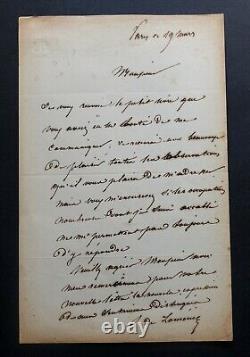 Paris ce 19 mars
Monsieur
Je vous renvoie le petit que
vous aviez eu la bonté de me
communiquer, je recevrai avec beaucoup
de plaisir toutes les observations
qu'il vous plaira de m'adresser
mais vous m'excuserez si les occupations
nombreuses dont je suis accablé
ne me permettent pas toujours
d'y répondre
Veuillez agréer Monsieur mes
pour votre
nouvelle lettre la nouvelle expression
de mes sentiments distingués